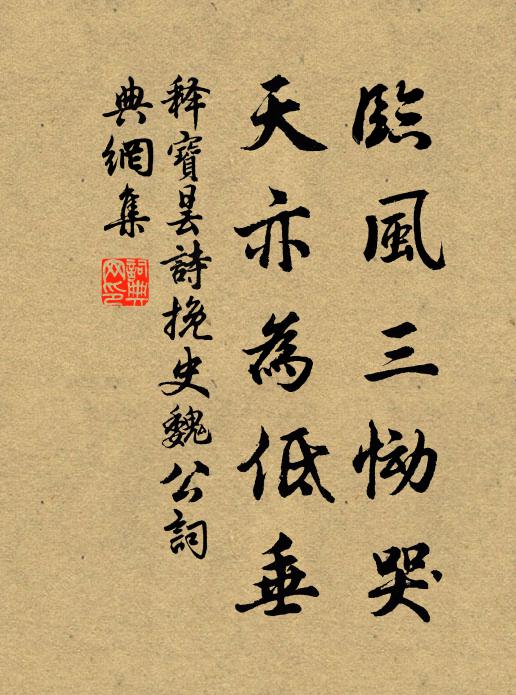 臨風三慟哭
天亦為低垂
釋寶曇詩挽史魏公詞
典網集
詞典網印